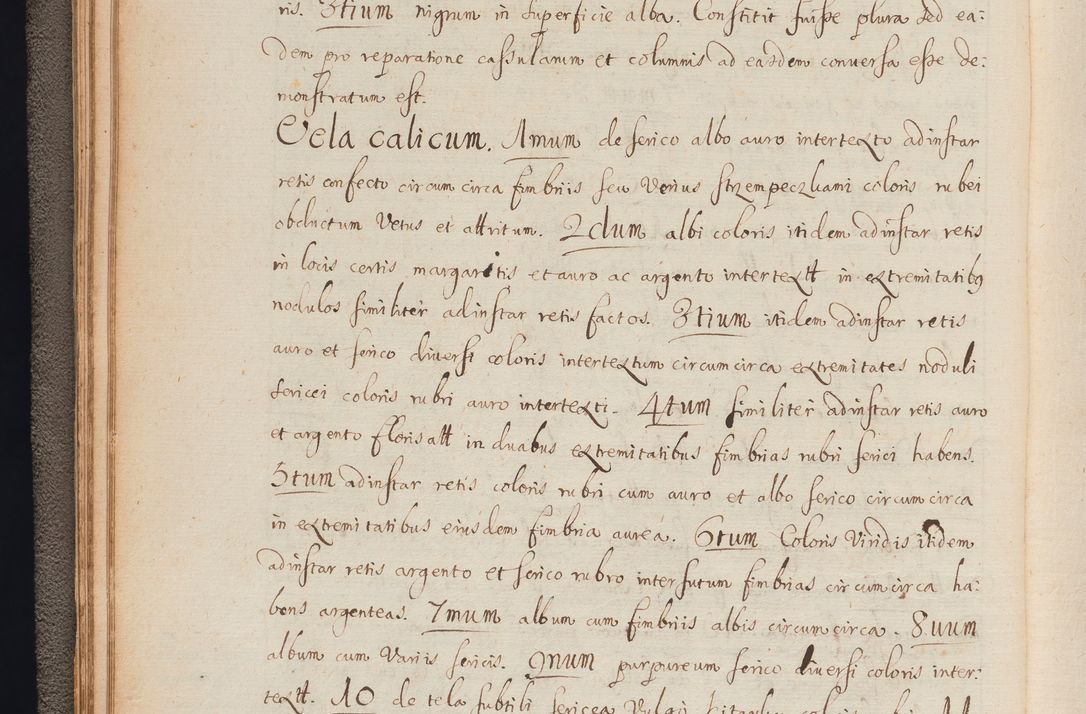 ris. 3tium nigrum in superficie alba. Constitit fuisse plura sed ea:
dem pro reparatione cassularum et columnis ad easdem conversa esse de:
monstratum est.
Vela calicum. 1mum de serico albo auro intertexto adinstar
retis confecto circumcirca fimbriis seu verius strzempeczkami coloris rubei
obductum vetus et attritum. 2dum albi coloris itidem adinstar retis
in locis certis margaritis et auro ac argento intertextt in extremitatibus
nodulos similiter adinstar retis factos. 3tium itidem adinstar retis
auro et serico diversi coloris intertextum circumcirca extremitates noduli
sericei coloris rubri auro intertexti. 4tum similiter adinstar retis auro
et argento florisatt in duabus extremitatibus fimbrias rubri serici habens.
5tum adinstar retis coloris rubri cum auro et albo serico circumcirca
in extremitatibus eiusdem fimbria aurea. 6tum Coloris Viridis itidem
adinstar retis argento et serico rubro intersutum fimbrias circumcirca ha:
bens argenteas. 7mum album cum fimbriis albis circumcirca. 8vum
album cum variis sericis. 9num purpureum serico diversi coloris inter:
textt. 10 de tela subtili sericea vulgo